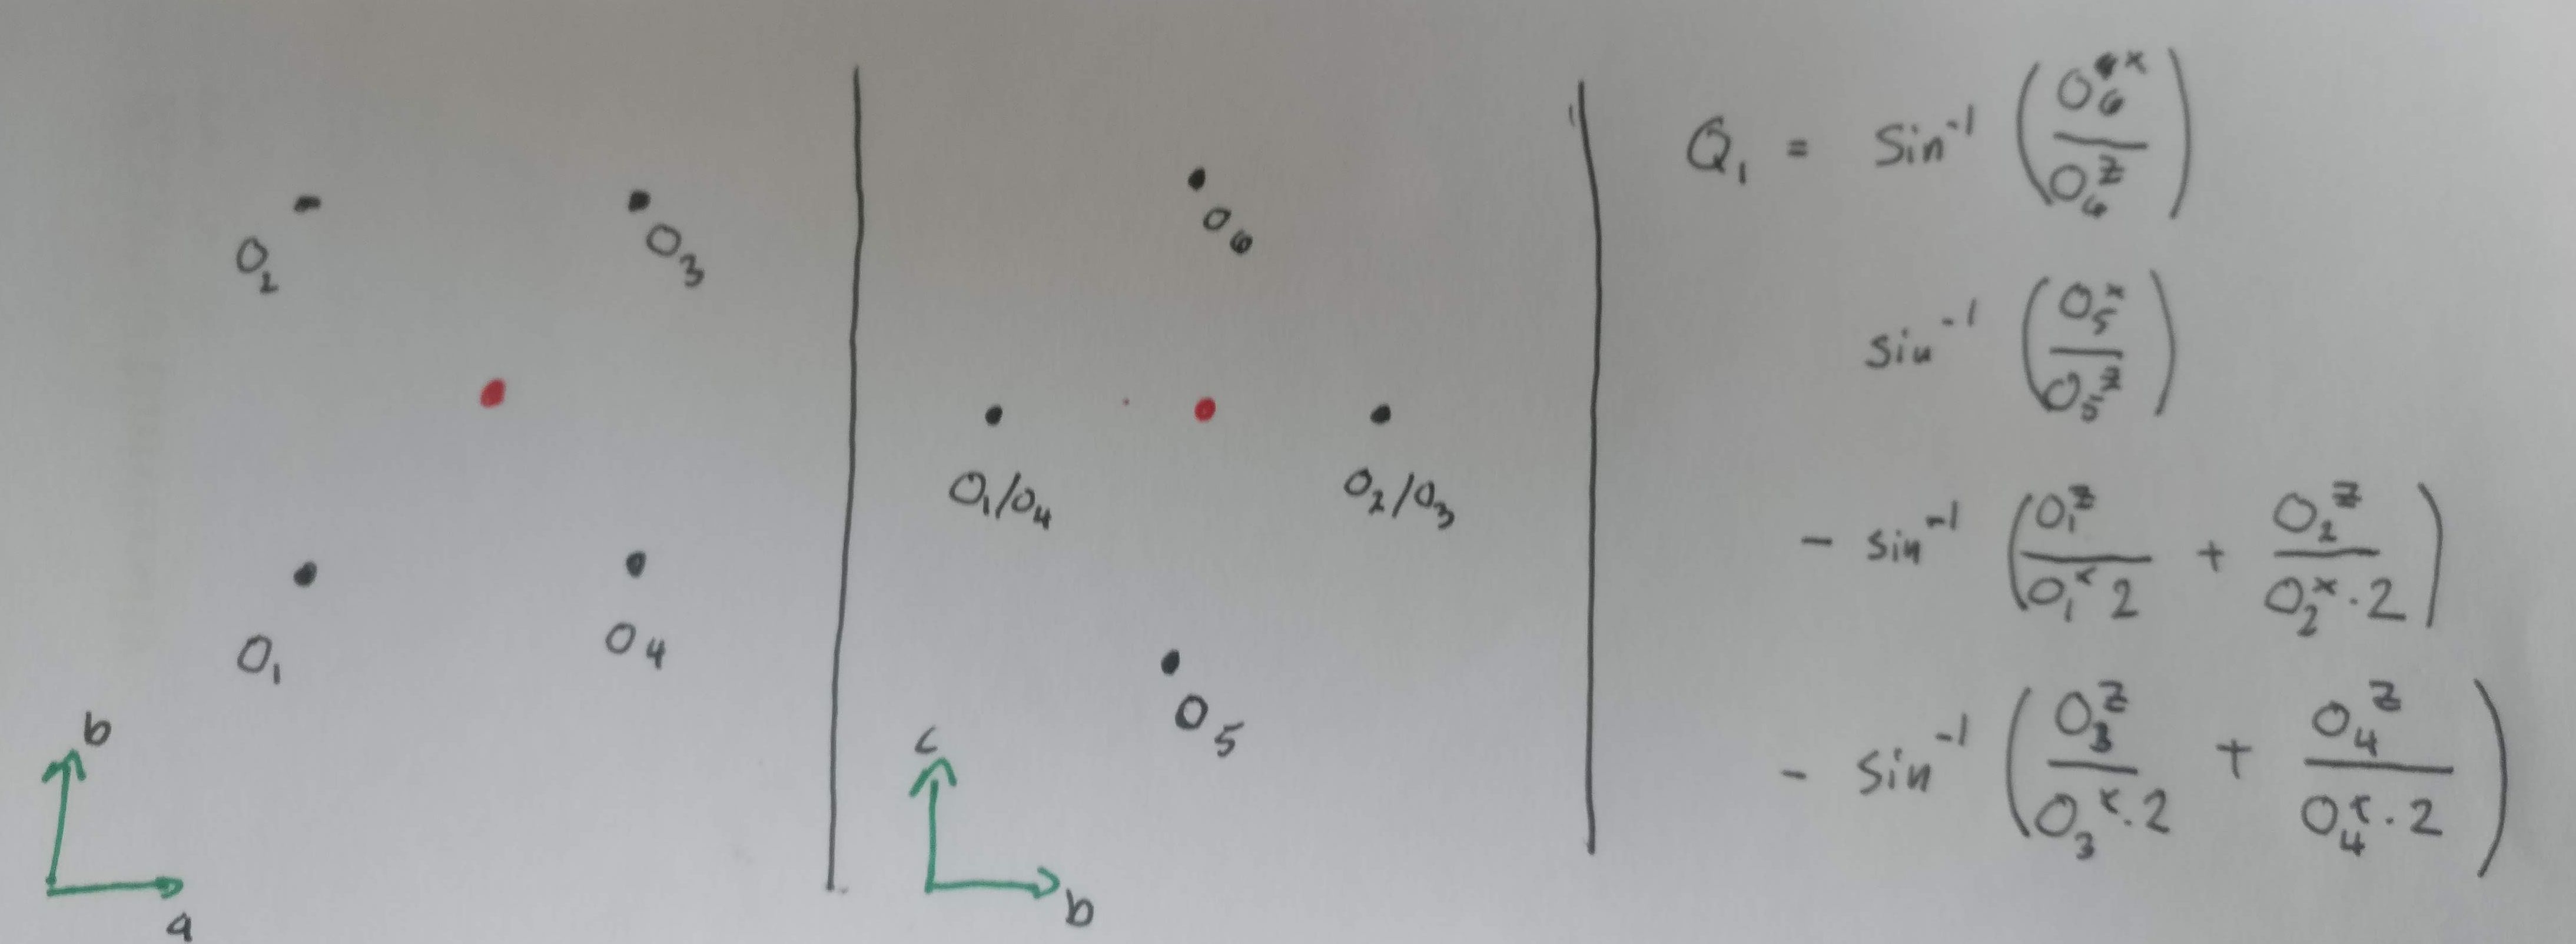 O₂
O₃
O₁
O₄
b
a
O₆
O₁/O₄
O₂/O₃
O₅
c
b
Q₁ = Sin⁻¹ (O₆ˣ / O₆ᶻ)
sin⁻¹ (O₅ˣ / O₅ᶻ)
- sin⁻¹ (O₁ᶻ / O₁ˣ 2 + O₂ᶻ / O₂ˣ · 2)
- sin⁻¹ (O₃ᶻ / O₃ˣ · 2 + O₄ᶻ / O₄ˣ · 2)